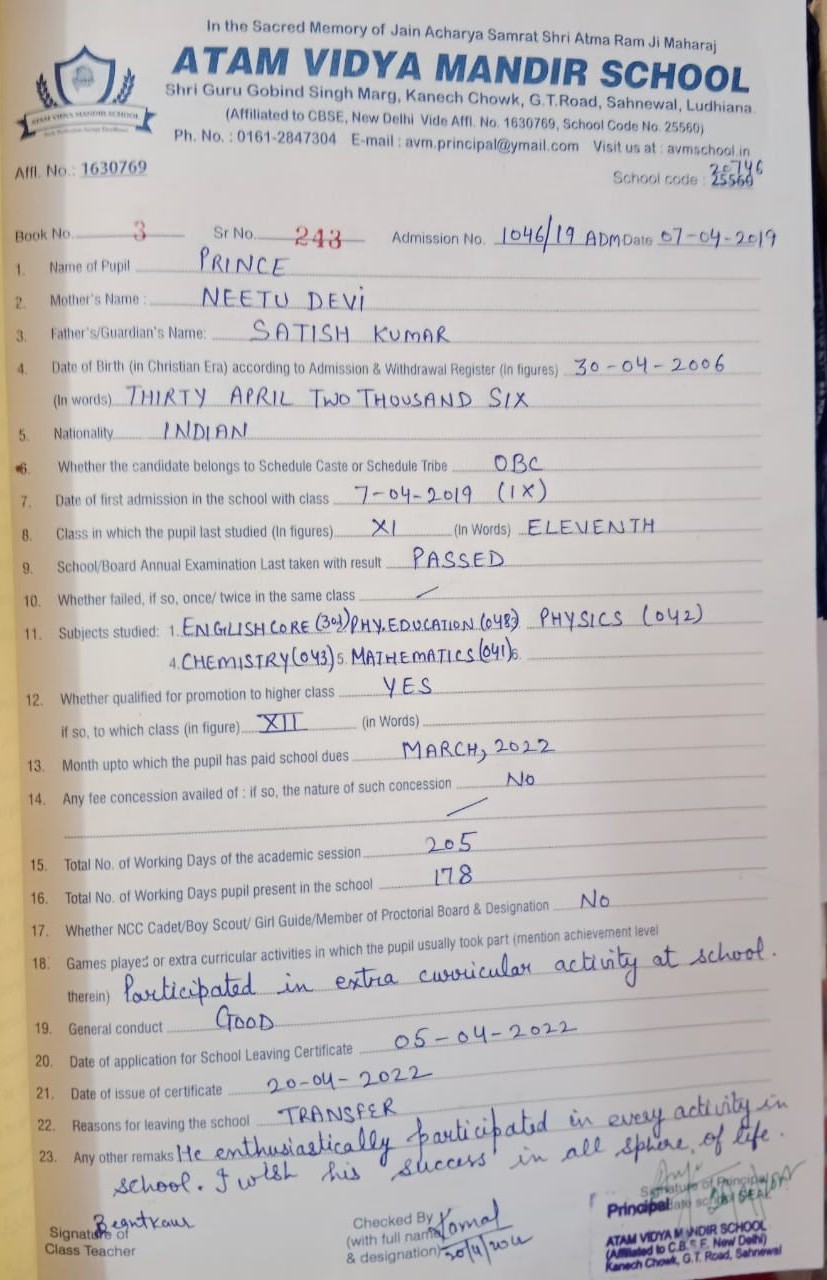 In the Sacred Memory of Jain Acharya Samrat Shri Atma Ram Ji Maharaj
ATAM VIDYA MANDIR SCHOOL
Shri Guru Gobind Singh Marg, Kanech Chowk, G.T.Road, Sahnewal, Ludhiana
(Affiliated to CBSE, New Delhi Vide Affl. No. 1630769, School Code No. 25560)
Ph. No. : 0161-2847304 E-mail : avm.principal@ymail.com Visit us at : avmschool.in
ATAM VIDYA MANDIR SCHOOL
Affl. No.: 1630769
20746
School code : 25560
Book No. 3 Sr No. 243 Admission No. 1046/19 ADM Date 07-04-2019
1. Name of Pupil PRINCE
2. Mother's Name : NEETU DEVi
3. Father's/Guardian's Name: SATISH KUMAR
4. Date of Birth (in Christian Era) according to Admission & Withdrawal Register (in figures) 30-04-2006
(In words) THIRTY APRIL TWO THOUSAND SIX
5. Nationality INDIAN
6. Whether the candidate belongs to Schedule Caste or Schedule Tribe OBC
7. Date of first admission in the school with class 7-04-2019 (IX)
8. Class in which the pupil last studied (In figures) XI (In Words) ELEVENTH
9. School/Board Annual Examination Last taken with result PASSED
10. Whether failed, if so, once/ twice in the same class
11. Subjects studied: 1. ENGLISH CORE (301) PHY. EDUCATION (048) PHYSICS (042)
4. CHEMISTRY (043) 5. MATHEMATICS (041) 6.
12. Whether qualified for promotion to higher class YES
if so, to which class (in figure) XII (in Words)
13. Month upto which the pupil has paid school dues MARCH, 2022
14. Any fee concession availed of : if so, the nature of such concession No
15. Total No. of Working Days of the academic session 205
16. Total No. of Working Days pupil present in the school 178
17. Whether NCC Cadet/Boy Scout/ Girl Guide/Member of Proctorial Board & Designation No
18. Games played or extra curricular activities in which the pupil usually took part (mention achievement level
therein) Participated in extra curricular activity at school.
19. General conduct GOOD
20. Date of application for School Leaving Certificate 05-04-2022
21. Date of issue of certificate 20-04-2022
22. Reasons for leaving the school TRANSFER
23. Any other remaks He enthusiastically participated in every activity in
school. I wish his success in all sphere of life.
Signature of Principal
Principal
Signature of Class Teacher
Checked By Komal
(with full name
& designation)
ATAM VIDYA MANDIR SCHOOL
(Affiliated to C.B.S.E. New Delhi)
Kanech Chowk, G.T. Road, Sahnewal